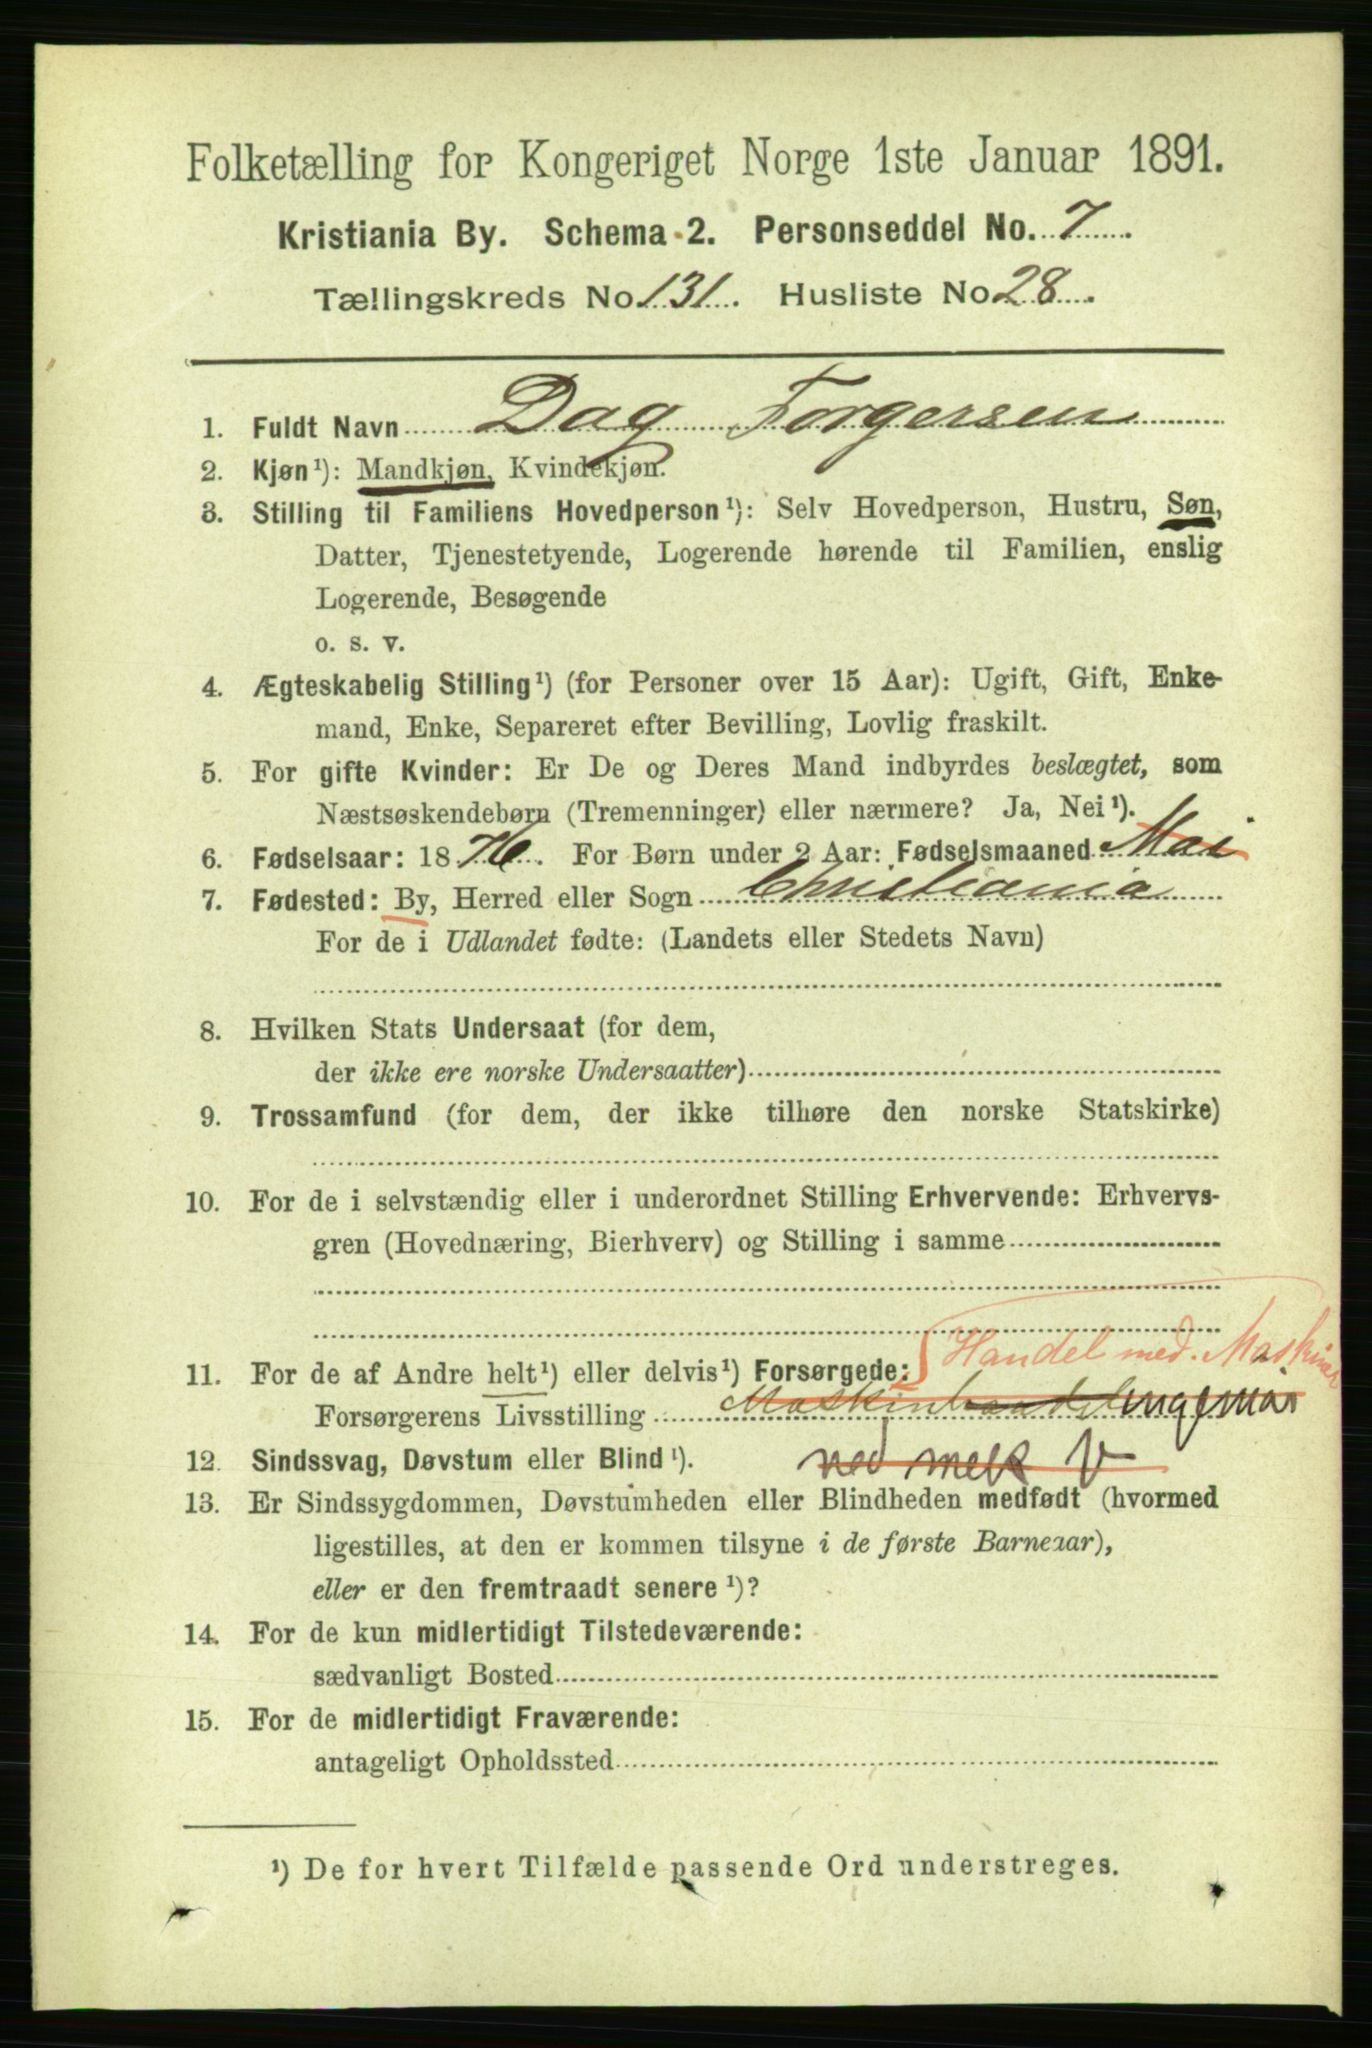 Folketælling for Kongeriget Norge 1ste Januar 1891.
Kristiania By. Schema 2. Personseddel No. 7
Tællingskreds No 131. Husliste No 28.
1. Fuldt Navn Dag Torgersen
2. Kjøn ¹): Mandkjøn, Kvindekjøn.
3. Stilling til Familiens Hovedperson ¹): Selv Hovedperson, Hustru, Søn,
Datter, Tjenestetyende, Logerende hørende til Familien, enslig
Logerende, Besøgende
o. s. v.
4. Ægteskabelig Stilling ¹) (for Personer over 15 Aar): Ugift, Gift, Enke-
mand, Enke, Separeret efter Bevilling, Lovlig fraskilt.
5. For gifte Kvinder: Er De og Deres Mand indbyrdes beslægtet, som
Næstsøskendebørn (Tremenninger) eller nærmere? Ja, Nei ¹).
6. Fødselsaar: 1876. For Børn under 2 Aar: Fødselsmaaned Mai
7. Fødested: By, Herred eller Sogn Christiania
For de i Udlandet fødte: (Landets eller Stedets Navn)
8. Hvilken Stats Undersaat (for dem,
der ikke ere norske Undersaatter)
9. Trossamfund (for dem, der ikke tilhøre den norske Statskirke)
10. For de i selvstændig eller i underordnet Stilling Erhvervende: Erhvervs-
gren (Hovednæring, Bierhverv) og Stilling i samme
Handel med Maskiner
11. For de af Andre helt ¹) eller delvis ¹) Forsørgede:
Forsørgerens Livsstilling Maskinhandel ingeniør
12. Sindssvag, Døvstum eller Blind ¹).
13. Er Sindssygdommen, Døvstumheden eller Blindheden medfødt (hvormed
ligestilles, at den er kommen tilsyne i de første Barneaar),
eller er den fremtraadt senere ¹)?
14. For de kun midlertidigt Tilstedeværende:
sædvanligt Bosted
15. For de midlertidigt Fraværende:
antageligt Opholdssted
¹) De for hvert Tilfælde passende Ord understreges.